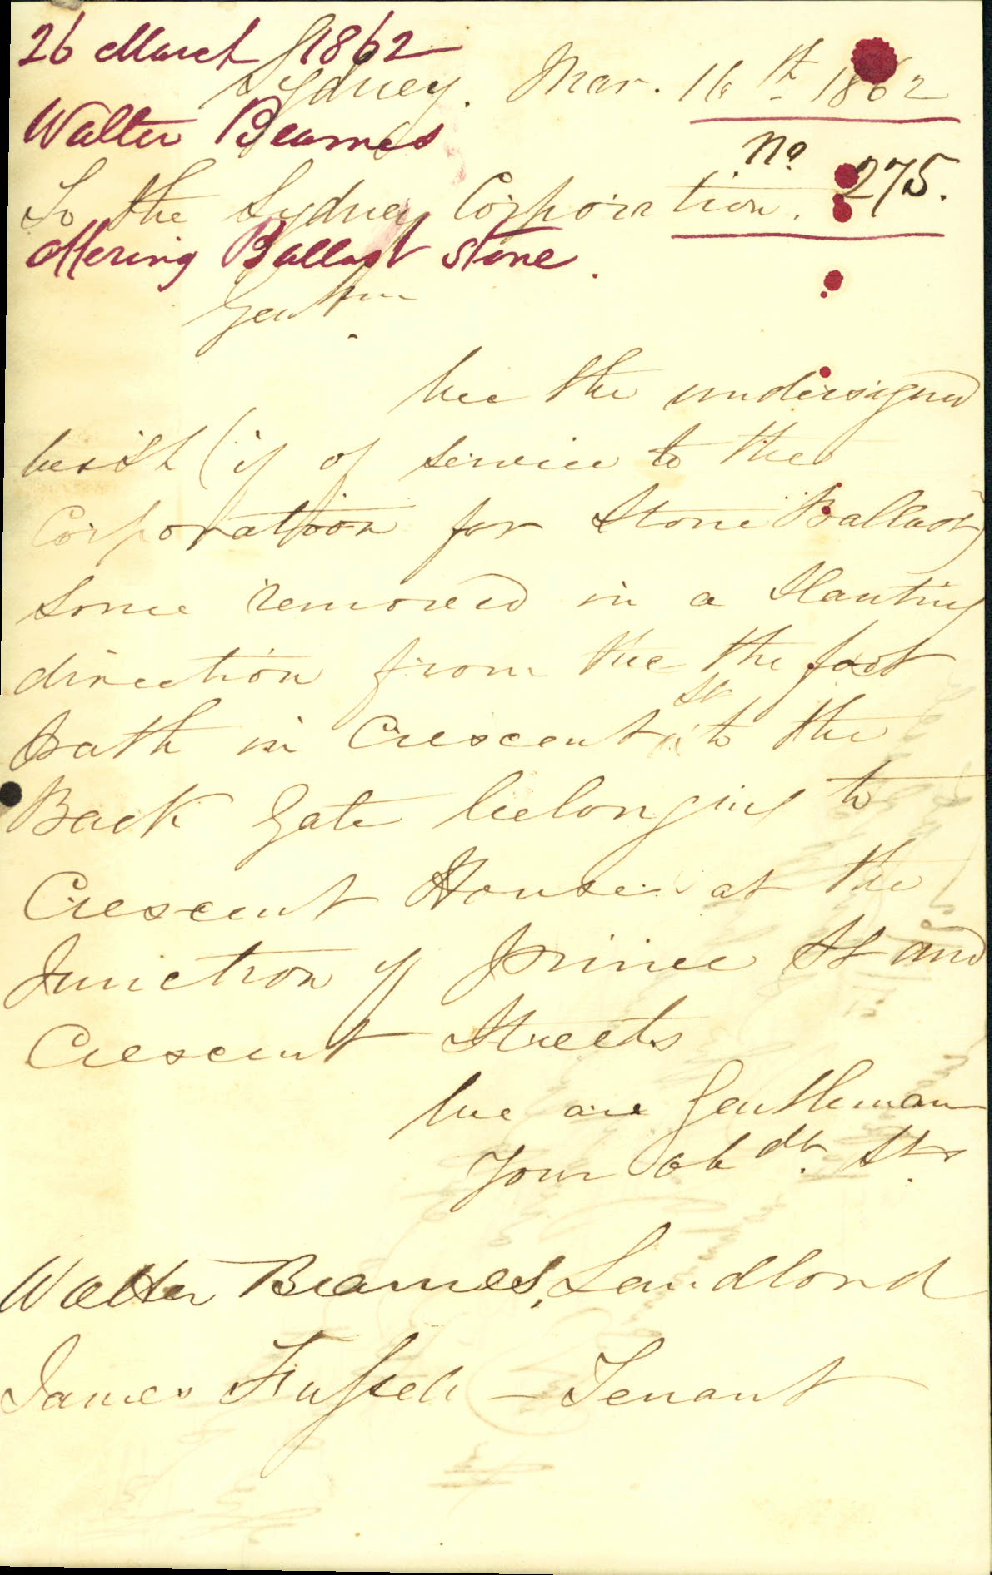 26 March 1862
Sydney. Mar. 16th 1862
Walter Beames
No. 275.
To the Sydney Corporation.
Offering Ballast Stone.
Gentlmn
We the undersigned
wish (if of service to the
Corporation for Stone Ballast)
some removed in a Slanting
direction from the the foot
Path in Crescent St to the
Back Gate belonging to
Crescent House at the
Junction of Prince St and
Crescent Streets
We are Gentleman
Your obdt. Sts
Walter Beames, Landlord
James - Tenant